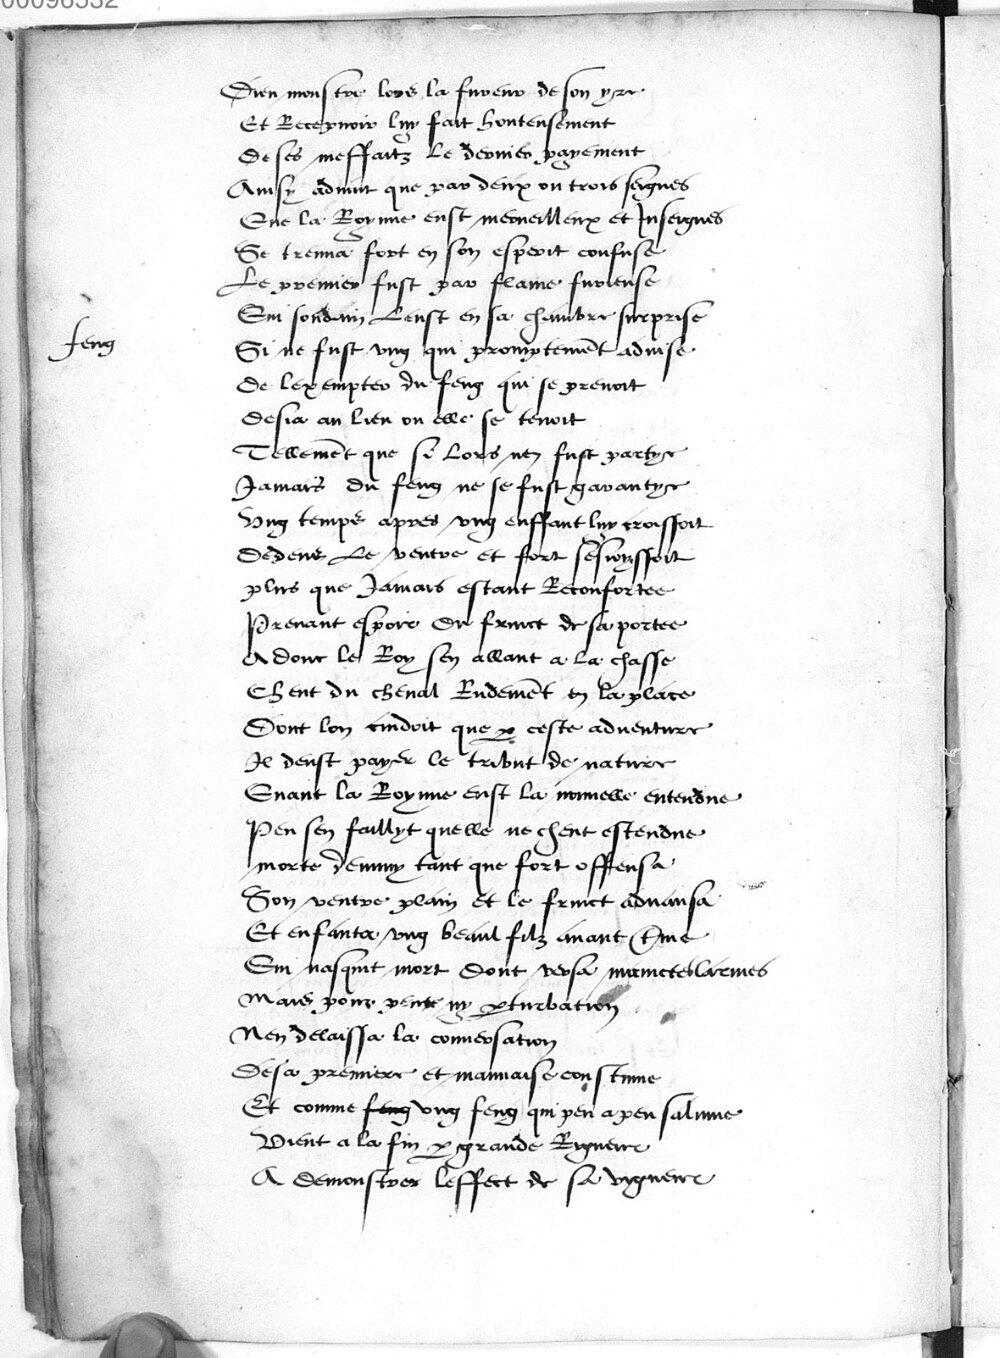 00096532
Dieu monstre lors la fureur de son yre
Et Recepuoir luy fait honteusement
De ses meffaitz le dernier payement
Ainsy aduint que par deux ou trois signes
Que la Royne eust merueilleux et Insignes
Se treuua fort en son esperit confuse
Le premier fust par flame furieuse
Qui soudain Leust en sa chambre surprise
feug
Si ne fust ung qui promptemẽt aduise
De lexempter du feug qui se prenoit
Desia au lieu ou elle se tenoit
Tellemẽt que si Lors nen fust partye
Jamais du feug ne se fust garantye
Ung temps apres ung enffant luy croissoit
Dedens Le ventre et fort sesiouyssoit
plus que Jamais estant Reconfortee
Prenant espoir du fruict de sa portee
Adonc le Roy sen allant a la chasse
Cheut du cheual Rudemẽt en la place
Dont lon cuidoit que p ceste aduenture
Il deust payer le tribut de nature
Quant la Royne eust la nouuelle entendue
Peu sen faillyt quelle ne cheut estendue
morte dennuy tant que fort offensa
Son ventre plain et le fruict aduansa
Et enfanta ung beau filz auant tme
Qui nasquit mort Dont versa mainctes larmes
Mais pour perte ny pturbation
Nen delaissa la conuersation
De sa premiere et mauuaise coustume
Et comme feug ung feug qui peu a peu salume
Vient a la fin p grande Rigueur
A demonstrer leffect de sa vigueur